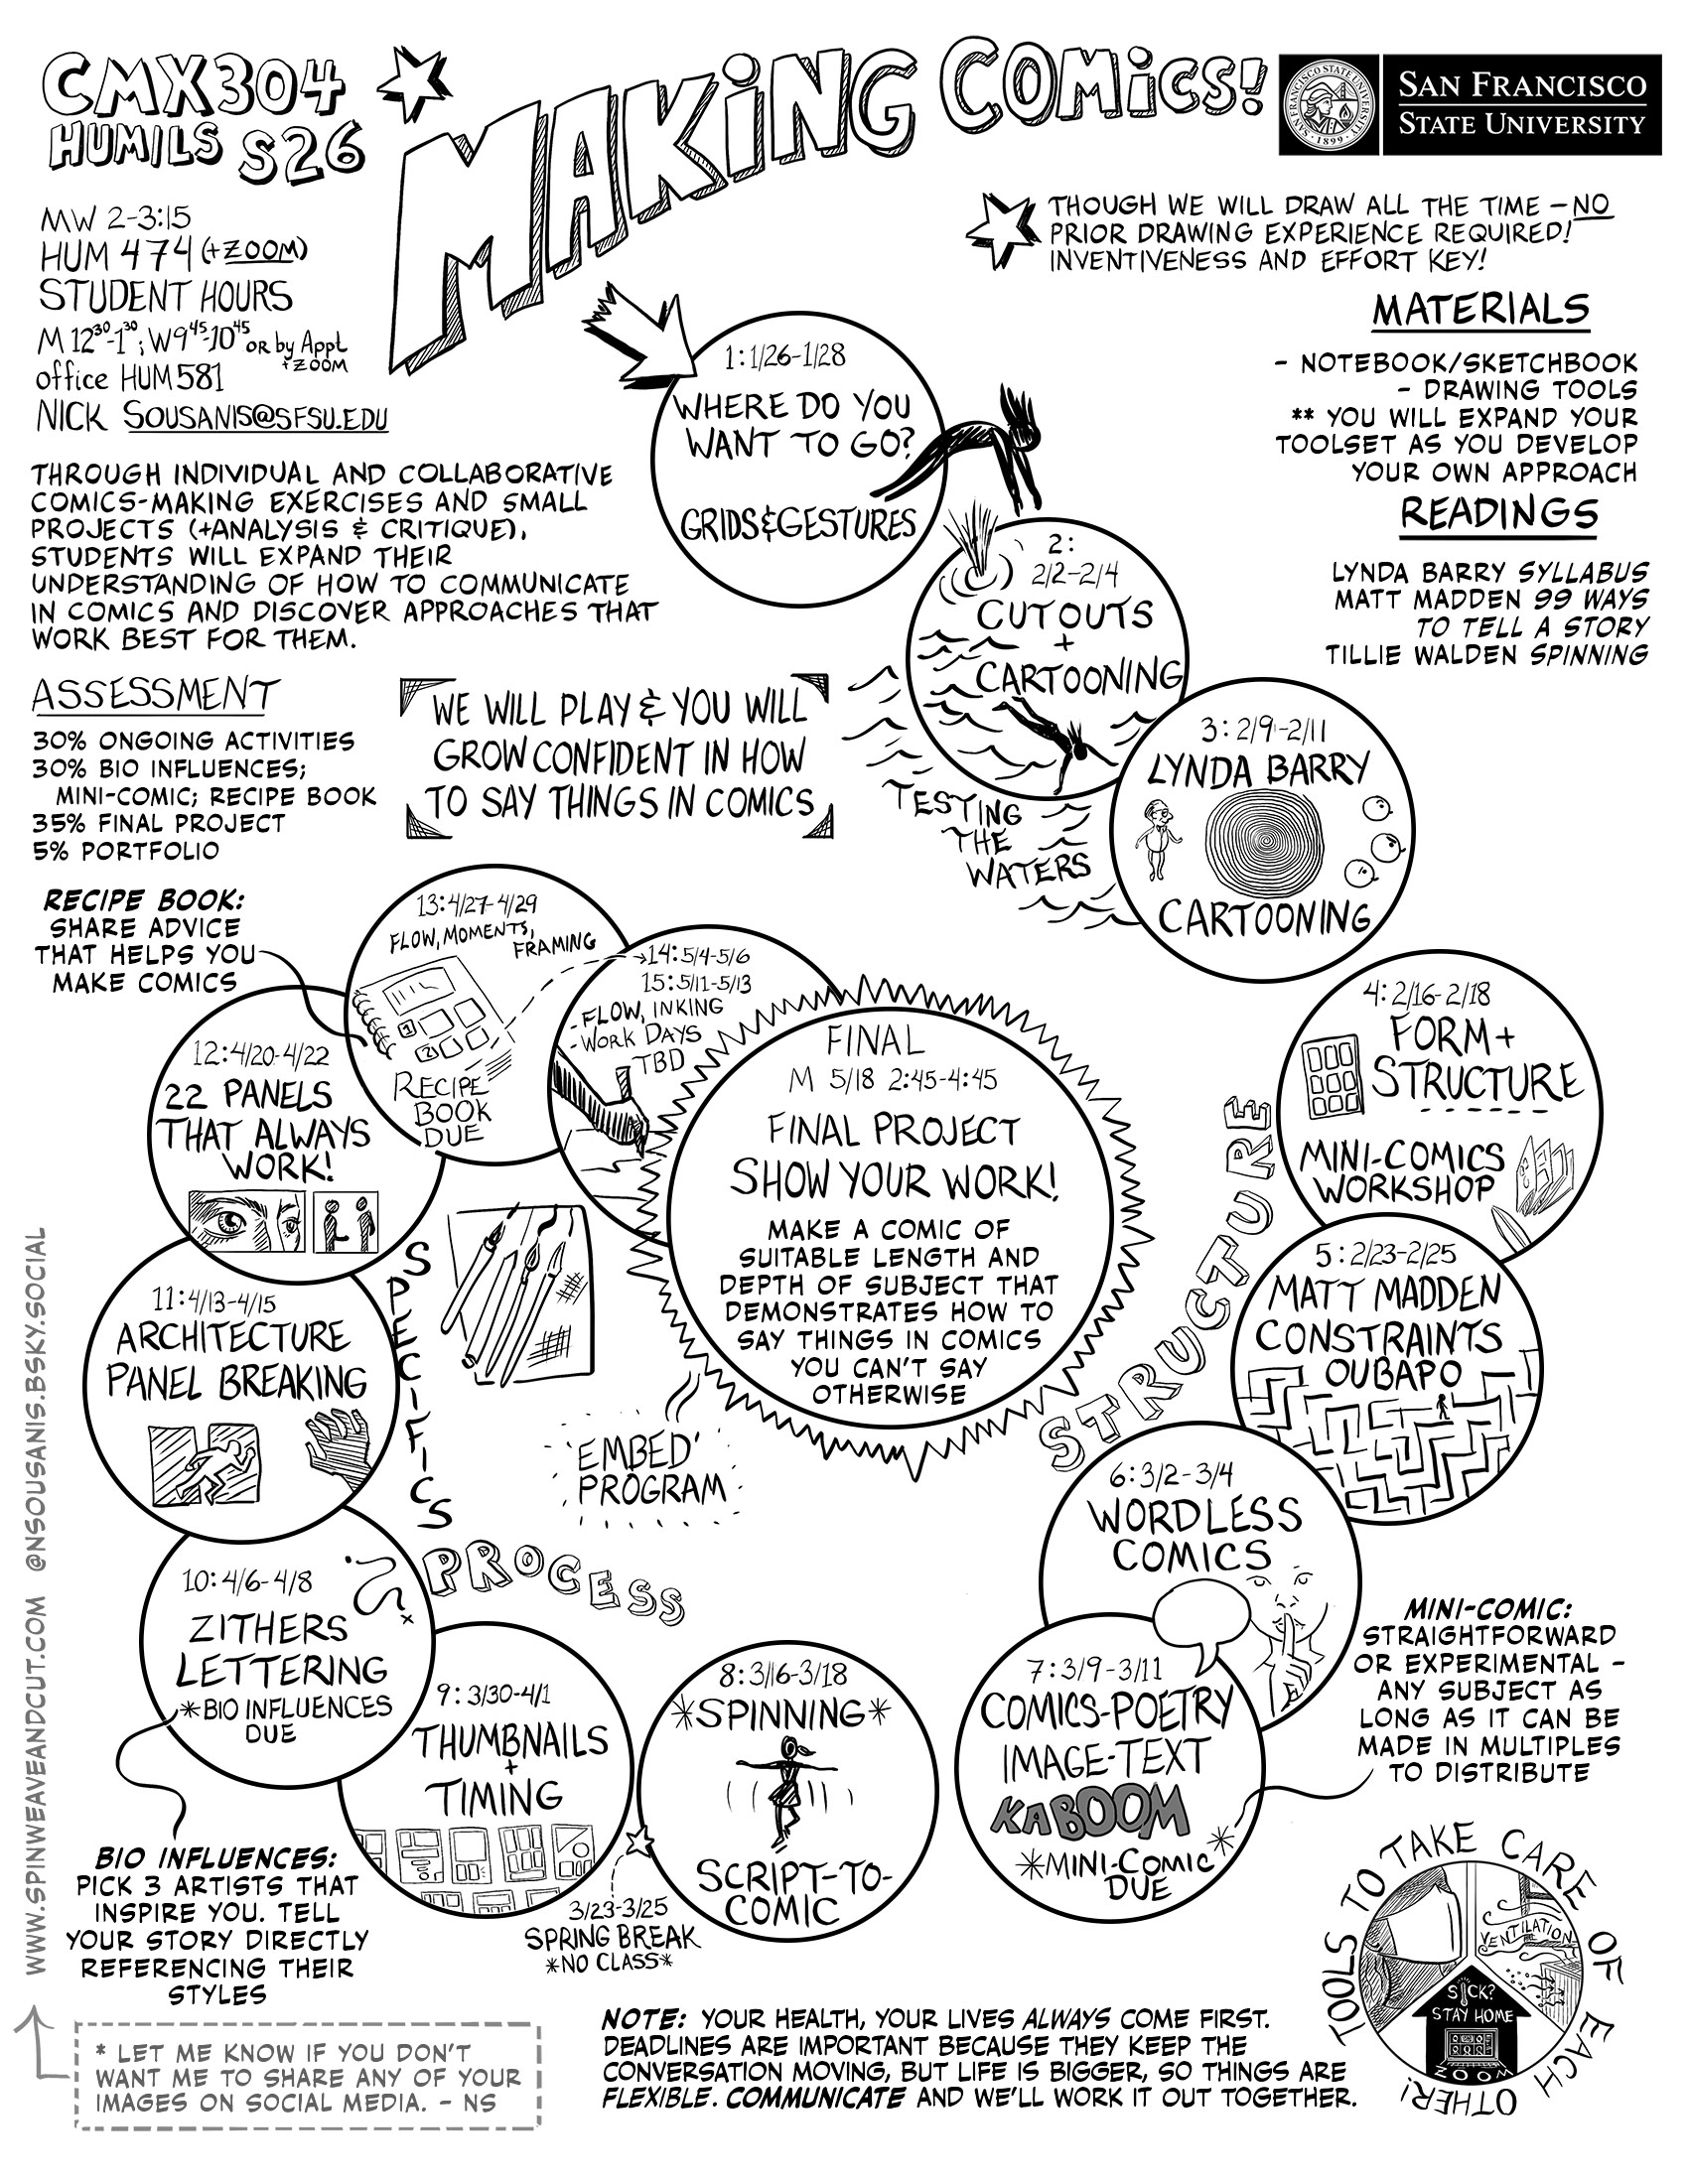 CMX304
HUMILS S26
MAKING COMICS!
SAN FRANCISCO STATE UNIVERSITY
1899
SAN FRANCISCO
STATE UNIVERSITY
MW 2-3:15
HUM 474 (+ZOOM)
STUDENT HOURS
M 12³⁰-1³⁰; W9⁴⁵-10⁴⁵ OR by Appt
+ZOOM
office HUM 581
NICK SOUSANIS@SFSU.EDU
THOUGH WE WILL DRAW ALL THE TIME – NO
PRIOR DRAWING EXPERIENCE REQUIRED!
INVENTIVENESS AND EFFORT KEY!
MATERIALS
- NOTEBOOK/SKETCHBOOK
- DRAWING TOOLS
** YOU WILL EXPAND YOUR
TOOLSET AS YOU DEVELOP
YOUR OWN APPROACH
READINGS
LYNDA BARRY SYLLABUS
MATT MADDEN 99 WAYS
TO TELL A STORY
TILLIE WALDEN SPINNING
THROUGH INDIVIDUAL AND COLLABORATIVE
COMICS-MAKING EXERCISES AND SMALL
PROJECTS (+ANALYSIS & CRITIQUE),
STUDENTS WILL EXPAND THEIR
UNDERSTANDING OF HOW TO COMMUNICATE
IN COMICS AND DISCOVER APPROACHES THAT
WORK BEST FOR THEM.
ASSESSMENT
30% ONGOING ACTIVITIES
30% BIO INFLUENCES;
MINI-COMIC; RECIPE BOOK
35% FINAL PROJECT
5% PORTFOLIO
WE WILL PLAY & YOU WILL
GROW CONFIDENT IN HOW
TO SAY THINGS IN COMICS
1: 1/26-1/28
WHERE DO YOU
WANT TO GO?
GRIDS & GESTURES
2:
2/2-2/4
CUTOUTS
+
CARTOONING
TESTING
THE
WATERS
3: 2/9-2/11
LYNDA BARRY
CARTOONING
4: 2/16-2/18
FORM +
STRUCTURE
MINI-COMICS
WORKSHOP
STRUCTURE
5: 2/23-2/25
MATT MADDEN
CONSTRAINTS
OUBAPO
6: 3/2-3/4
WORDLESS
COMICS
7: 3/9-3/11
COMICS-POETRY
IMAGE-TEXT
KABOOM
*MINI-COMIC
DUE
*
MINI-COMIC:
STRAIGHTFORWARD
OR EXPERIMENTAL –
ANY SUBJECT AS
LONG AS IT CAN BE
MADE IN MULTIPLES
TO DISTRIBUTE
8: 3/16-3/18
*SPINNING*
SCRIPT-TO-
COMIC
3/23-3/25
SPRING BREAK
*NO CLASS*
9: 3/30-4/1
THUMBNAILS
+
TIMING
PROCESS
10: 4/6-4/8
ZITHERS
LETTERING
*BIO INFLUENCES
DUE
BIO INFLUENCES:
PICK 3 ARTISTS THAT
INSPIRE YOU. TELL
YOUR STORY DIRECTLY
REFERENCING THEIR
STYLES
11: 4/13-4/15
ARCHITECTURE
PANEL BREAKING
SPECIFICS
12: 4/20-4/22
22 PANELS
THAT ALWAYS
WORK!
RECIPE BOOK:
SHARE ADVICE
THAT HELPS YOU
MAKE COMICS
13: 4/27-4/29
FLOW, MOMENTS,
FRAMING
1
2
RECIPE
BOOK
DUE
14: 5/4-5/6
15: 5/11-5/13
- FLOW, INKING
- WORK DAYS
TBD
FINAL
M 5/18 2:45-4:45
FINAL PROJECT
SHOW YOUR WORK!
MAKE A COMIC OF
SUITABLE LENGTH AND
DEPTH OF SUBJECT THAT
DEMONSTRATES HOW TO
SAY THINGS IN COMICS
YOU CAN'T SAY
OTHERWISE
'EMBED'
PROGRAM
WWW.SPINWEAVEANDCUT.COM @NSOUSANIS.BSKY.SOCIAL
* LET ME KNOW IF YOU DON'T
WANT ME TO SHARE ANY OF YOUR
IMAGES ON SOCIAL MEDIA. – NS
NOTE: YOUR HEALTH, YOUR LIVES ALWAYS COME FIRST.
DEADLINES ARE IMPORTANT BECAUSE THEY KEEP THE
CONVERSATION MOVING, BUT LIFE IS BIGGER, SO THINGS ARE
FLEXIBLE. COMMUNICATE AND WE'LL WORK IT OUT TOGETHER.
TOOLS TO TAKE CARE OF EACH OTHER!
VENTILATION
SICK?
STAY HOME
ZOOM